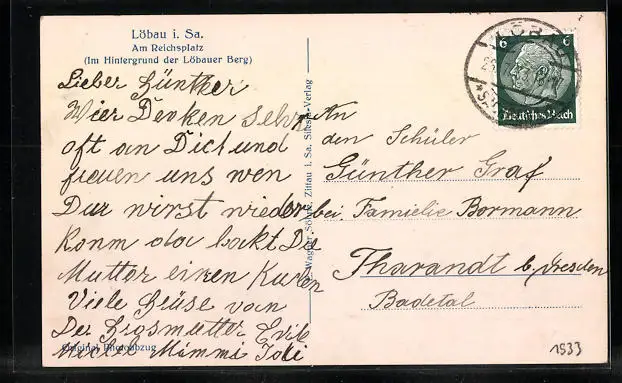 Löbau i. Sa.
Am Reichsplatz
(Im Hintergrund der Löbauer Berg)
Lieber Günther
Wier Denken sehr
oft an Dich und
freuen uns wen
Du wirst wieder
Komm da backt Die
Mutter einen Kuchen
Viele Grüse von
Der
Mimmi
Original Photoabzug
Wagner Söhne, Zittau i. Sa. Siksju-Verlag
LÖBAU
6 6
Deutsches Reich
An
den Schüler
Günther Graf
bei Famielie Bormann
Tharandt b. Dresden
Badetal
1933